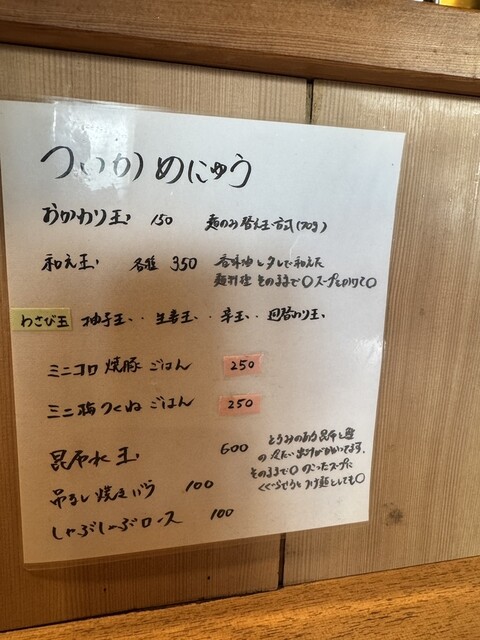 ついかめにゅう
おかわり玉 150 麺のみ替え玉方式(70g)
和え玉 各種 350 香味油とタレで和えた
麺料理 そのままで〇スープをかけて〇
わさび玉 柚子玉・・生姜玉・・辛玉・・日替わり玉
ミニコロ焼豚ごはん 250
ミニ鶏つくねごはん 250
昆布水玉 600 とろみのある昆布と
の冷たい出汁がかかってます。
そのままで〇 のこったスープに
くぐらせるとつけ麺としても〇
吊るし焼きバラ 100
しゃぶしゃぶロース 100